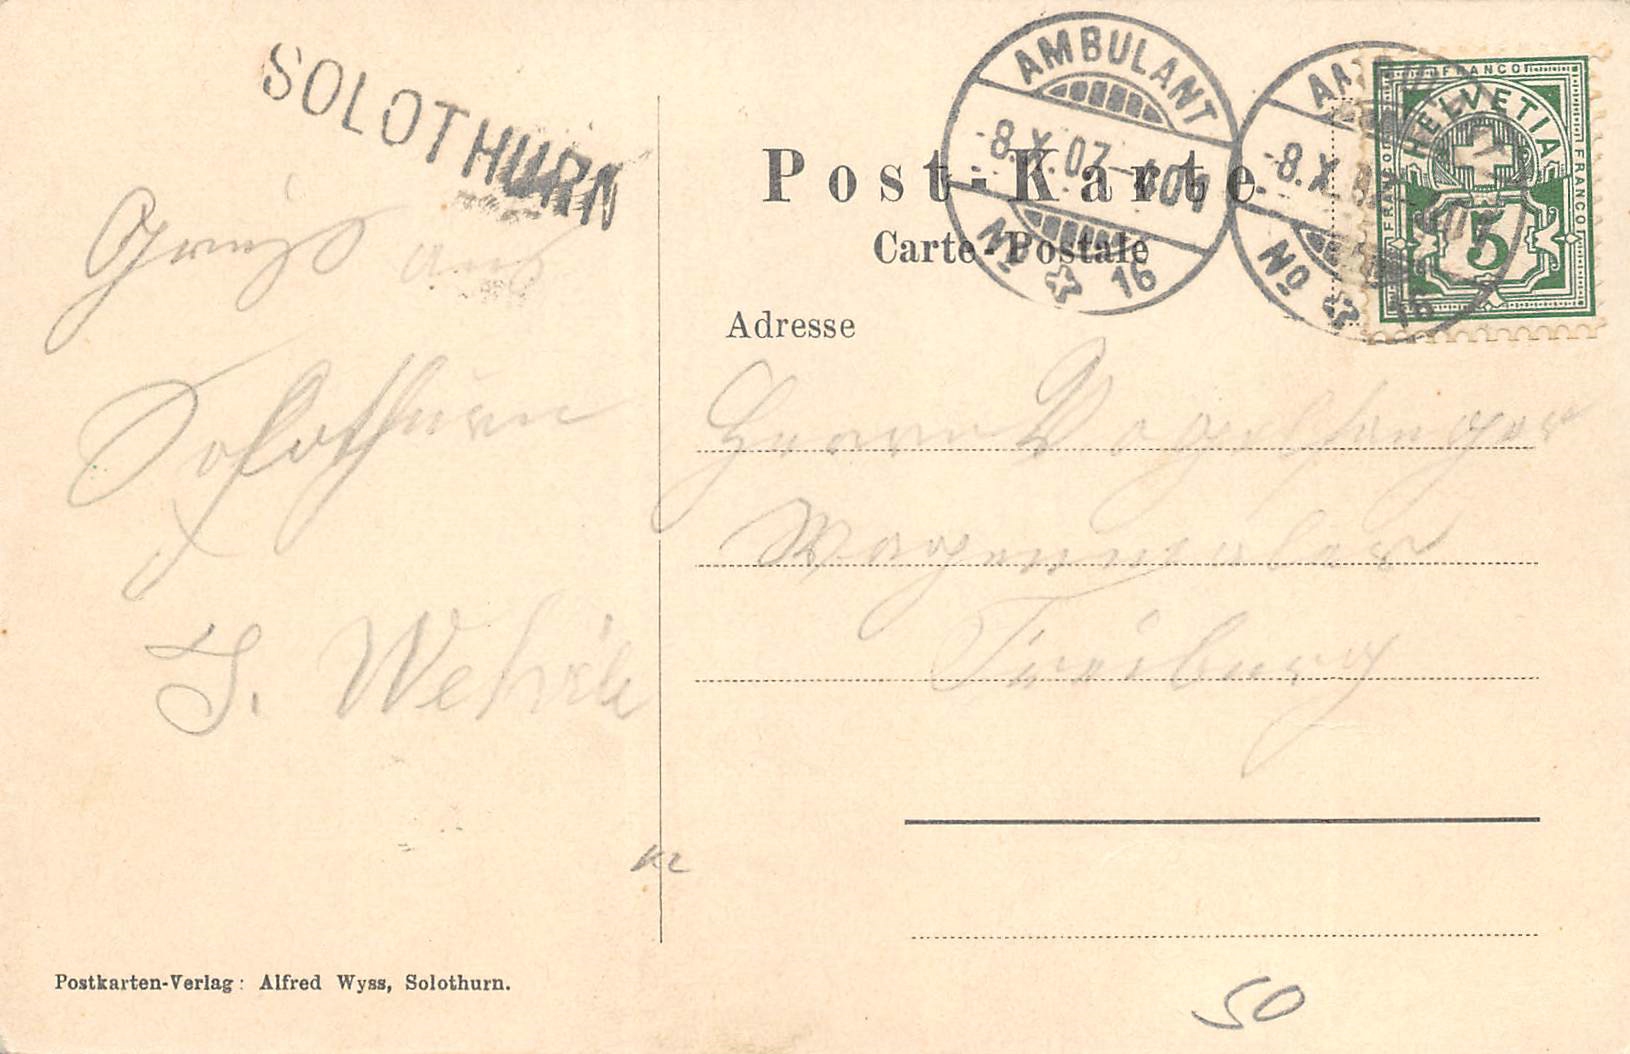 SOLOTHURN
AMBULANT
-8.X.07.-
No 16
-8.X.
No 16
FRANCO
HELVETIA
FRANCO
FRANCO
5
Post-Karte
Carte-Postale
Adresse
Gruss aus
Solothurn
J. Wehrle
Herrn Vogelsanger
Wagenmaler
Freiburg
50
Postkarten-Verlag: Alfred Wyss, Solothurn.